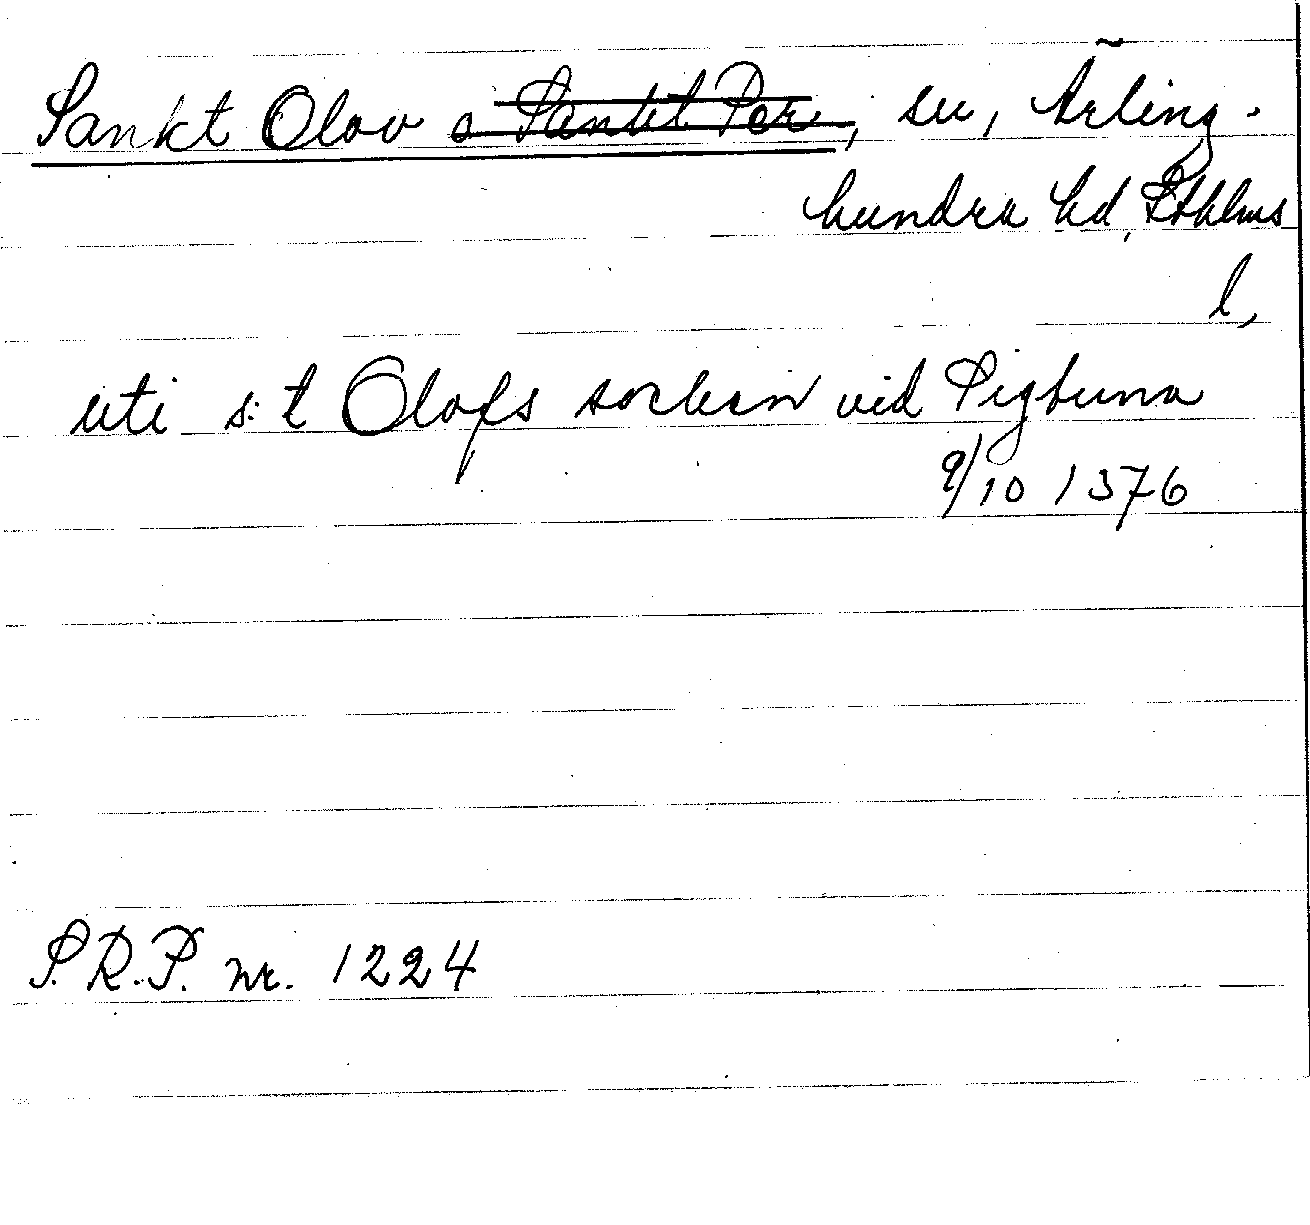 Sankt Olov o Sankt Per, sn, Ärling-
hundra hd, Sthlms
l,
uti s:t Olofs sochen vid Sigtuna
9/10 1376
S.R.P. nr. 1224